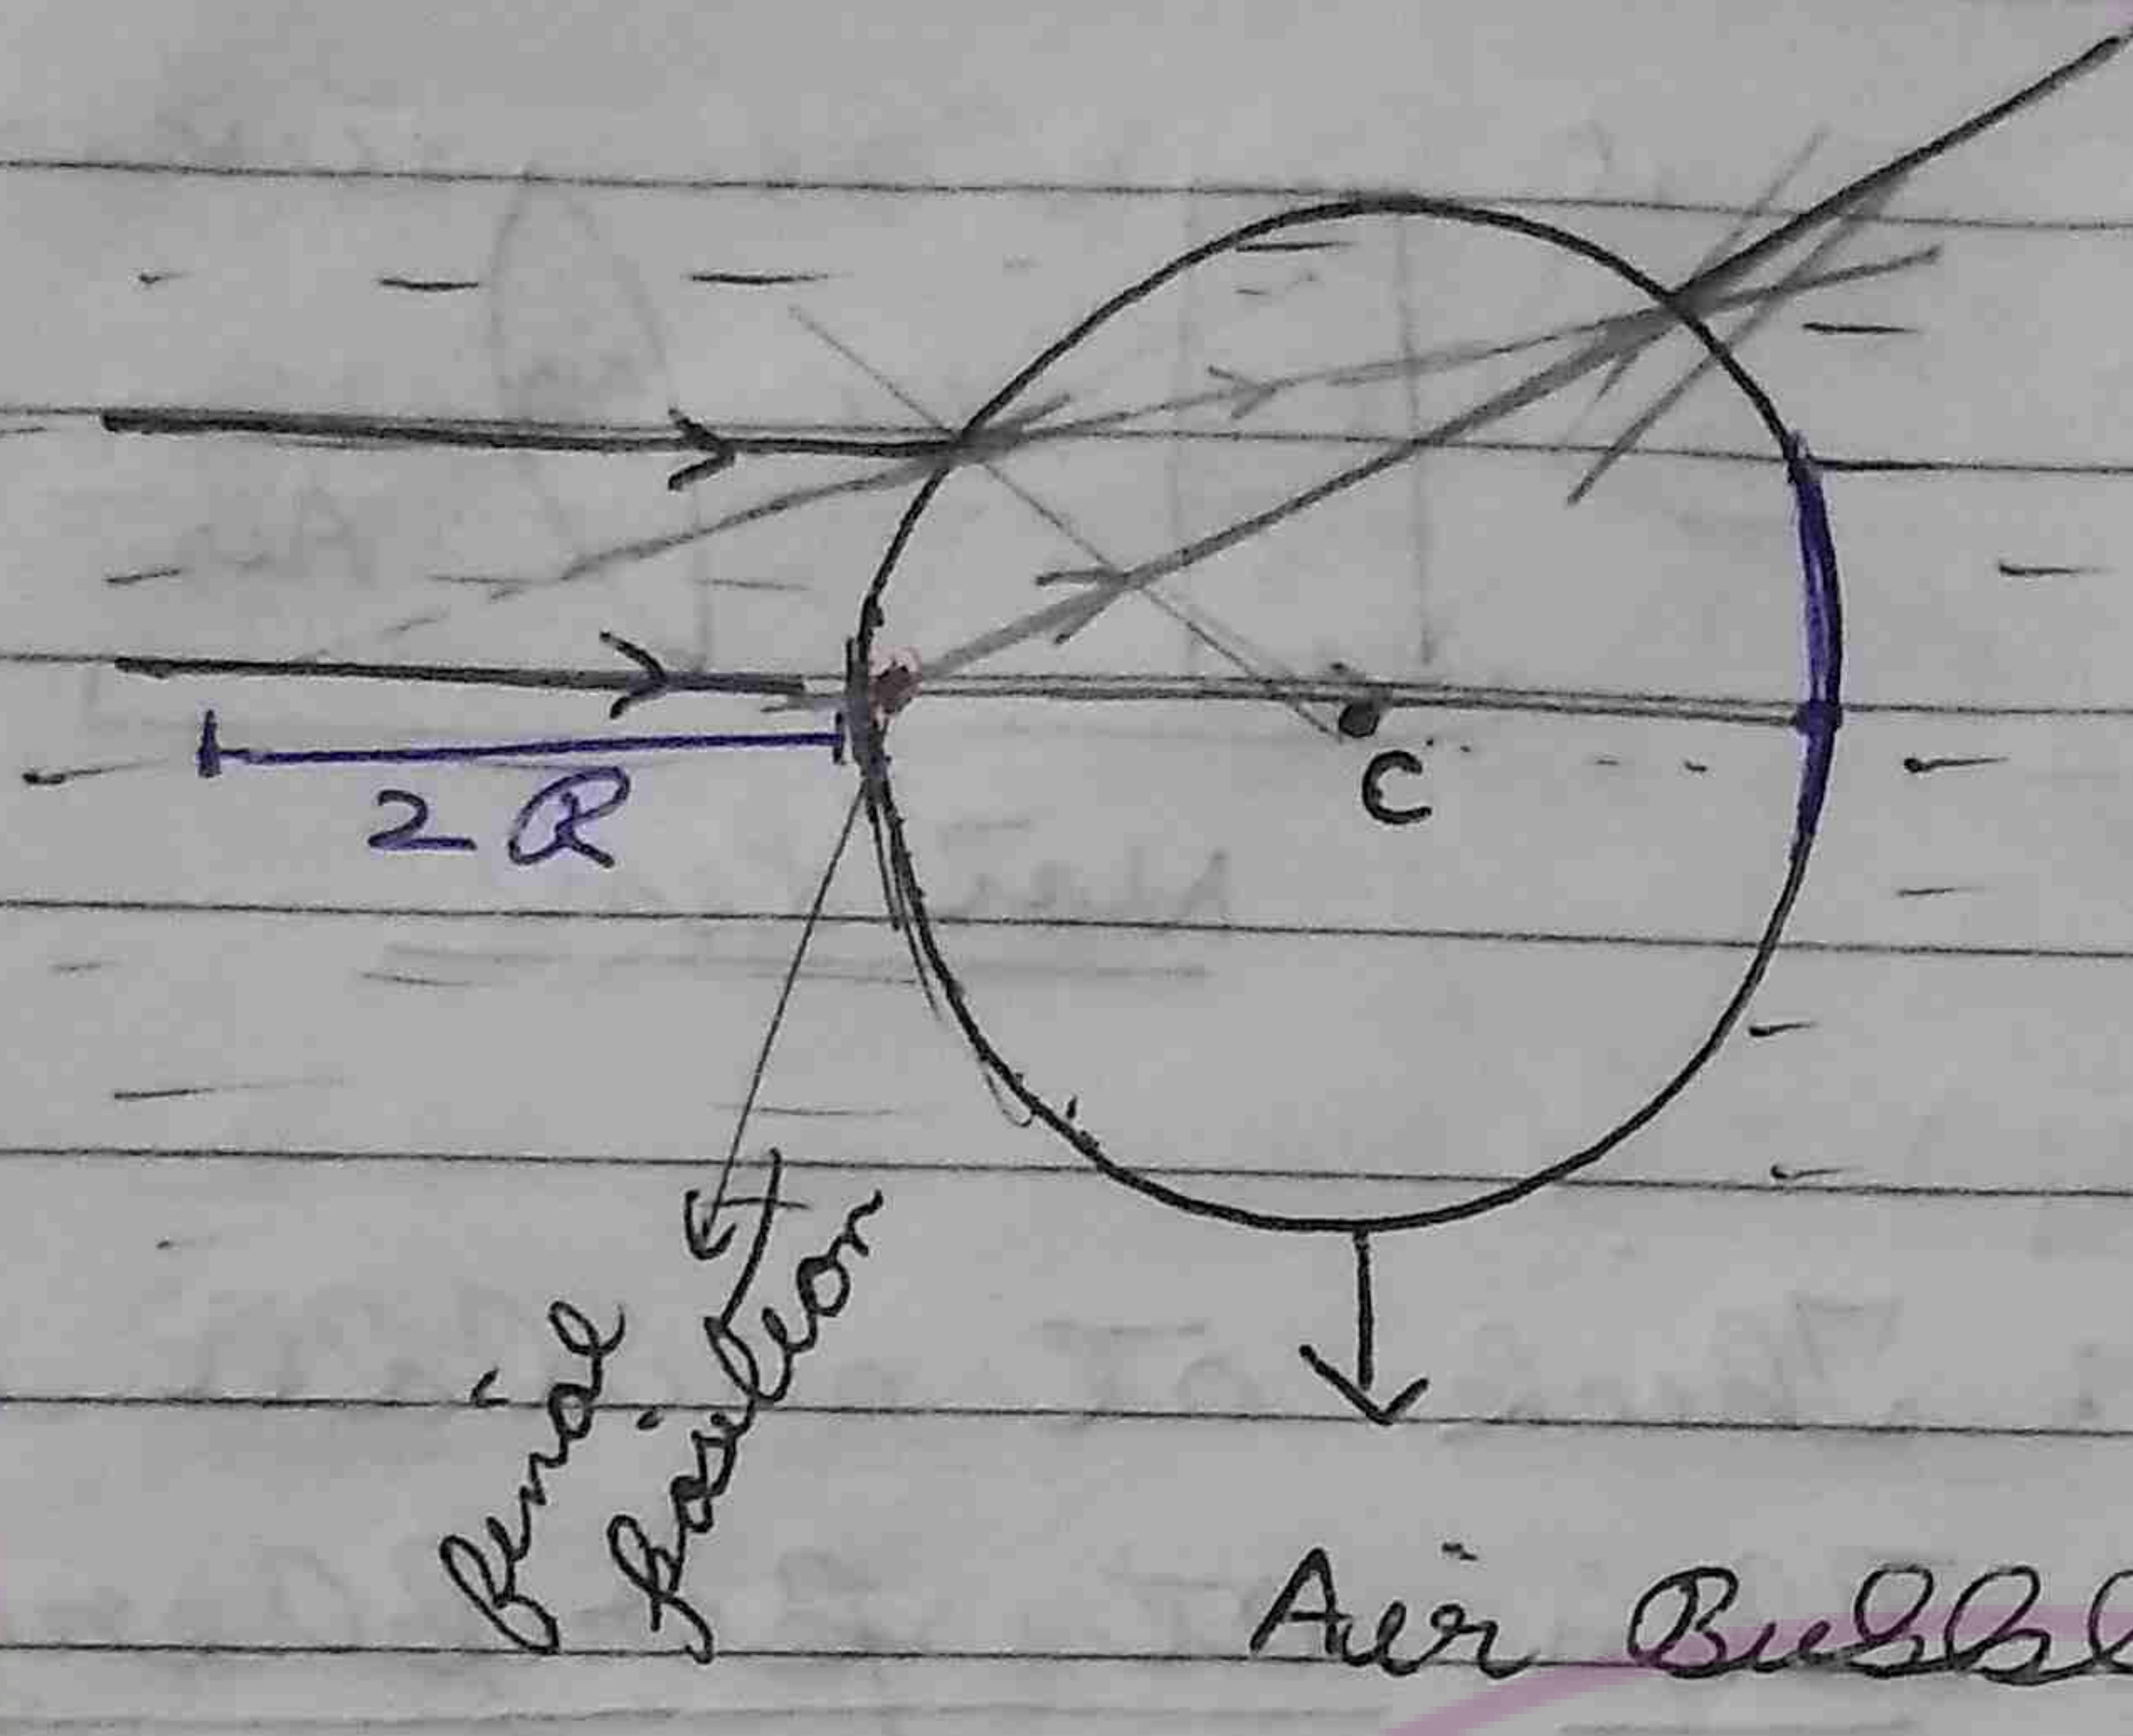 2 R
C
Final
position
Air Bubbl